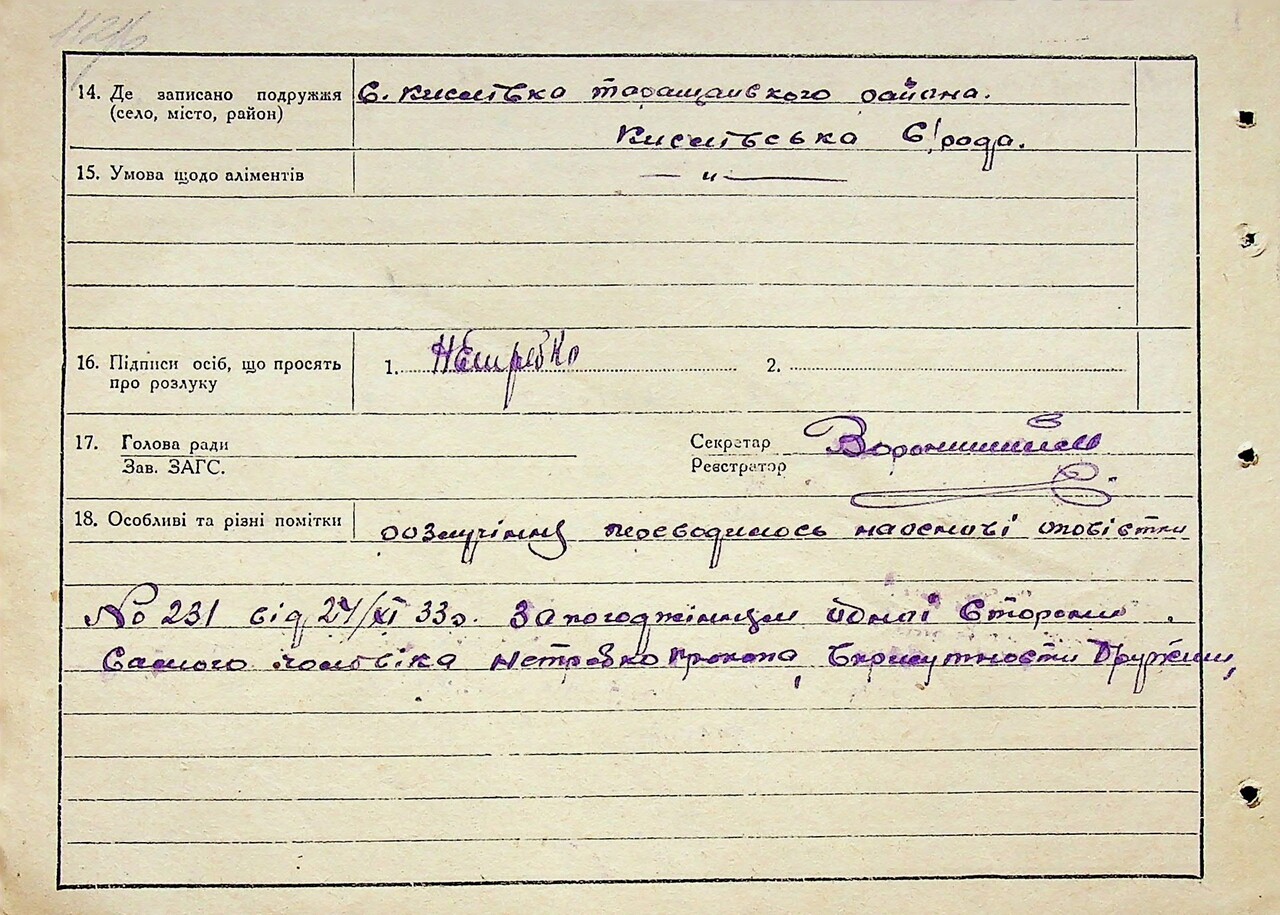 14. Де записано подружжя
(село, місто, район)
С. Кислівка таращанвского района.
Кислівська С/рада.
15. Умова щодо аліментів
— „ —
16. Підписи осіб, що просять
про розлуку
1. Нетребко 2.
17. Голова ради
Зав. ЗАГС.
Секретар
Реєстратор
18. Особливі та різні помітки
розлучіння переводилось наоснові повістки
No 231 від 27/XI 33г. Запогоджінням одної Сторони
Самого чоловіка Нетребко Прокопа, Вприсутности Дружини,